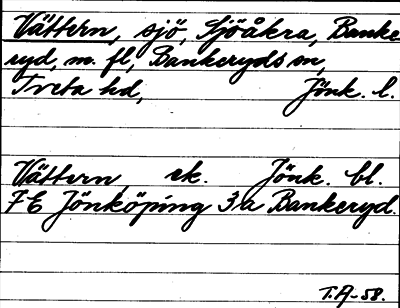 Vättern, sjö, Sjöåkra, Banke
ryd, m. fl, Bankeryds sn,
Tveta hd, Jönk. l.
Vättern ek. Jönk. bl.
7E Jönköping 3a Bankeryd.
T.A-58.